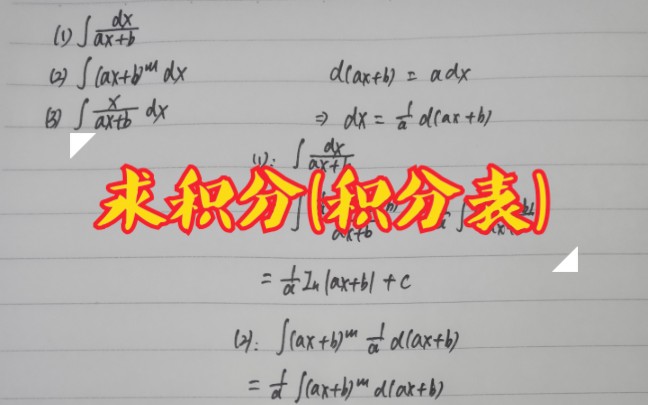 (1) ∫ dx/(ax+b)
(2) ∫ (ax+b)^m dx
d(ax+b) = a dx
(3) ∫ x/(ax+b) dx
⇒ dx = 1/a d(ax+b)
(1): ∫ dx/(ax+b
求积分(积分表)
∫ ax+b
= 1/a In |ax+b| + C
(2): ∫(ax+b)^m 1/a d(ax+b)
= 1/a ∫(ax+b)^m d(ax+b)